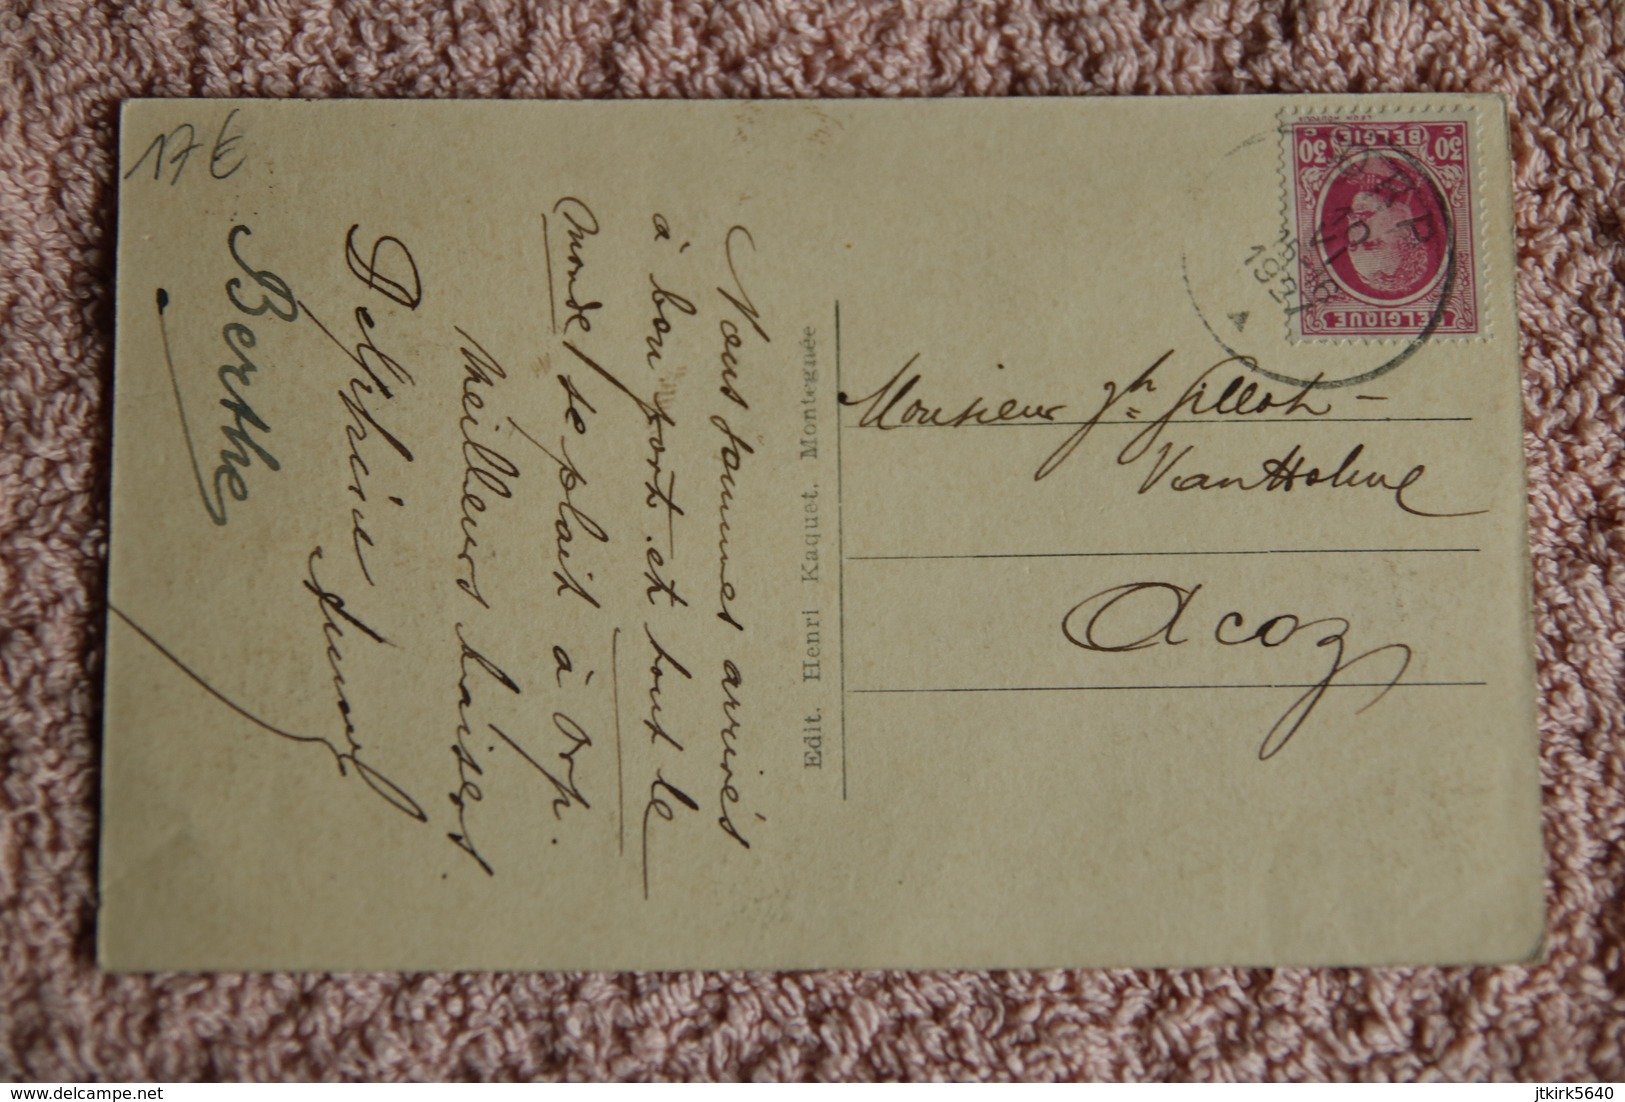 17 €
Nous sommes arrivés
à bon port et tout le
monde se plait à Orp.
Meilleurs baisers.
Delphine
Berthe
Edit. Henri Kaquet, Montegnée
BELGIQUE BELGIE
30 c 30 c
ORP
1924
Monsieur Jh Gillot-
Acoz
delcampe.net
jtkirk5640